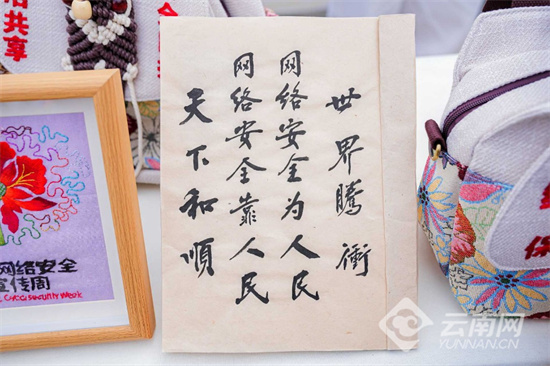 世界騰衝
网络安全为人民
网络安全靠人民
天下和順
共享
网络安全
宣传周
保
云南网
YUNNAN.CN